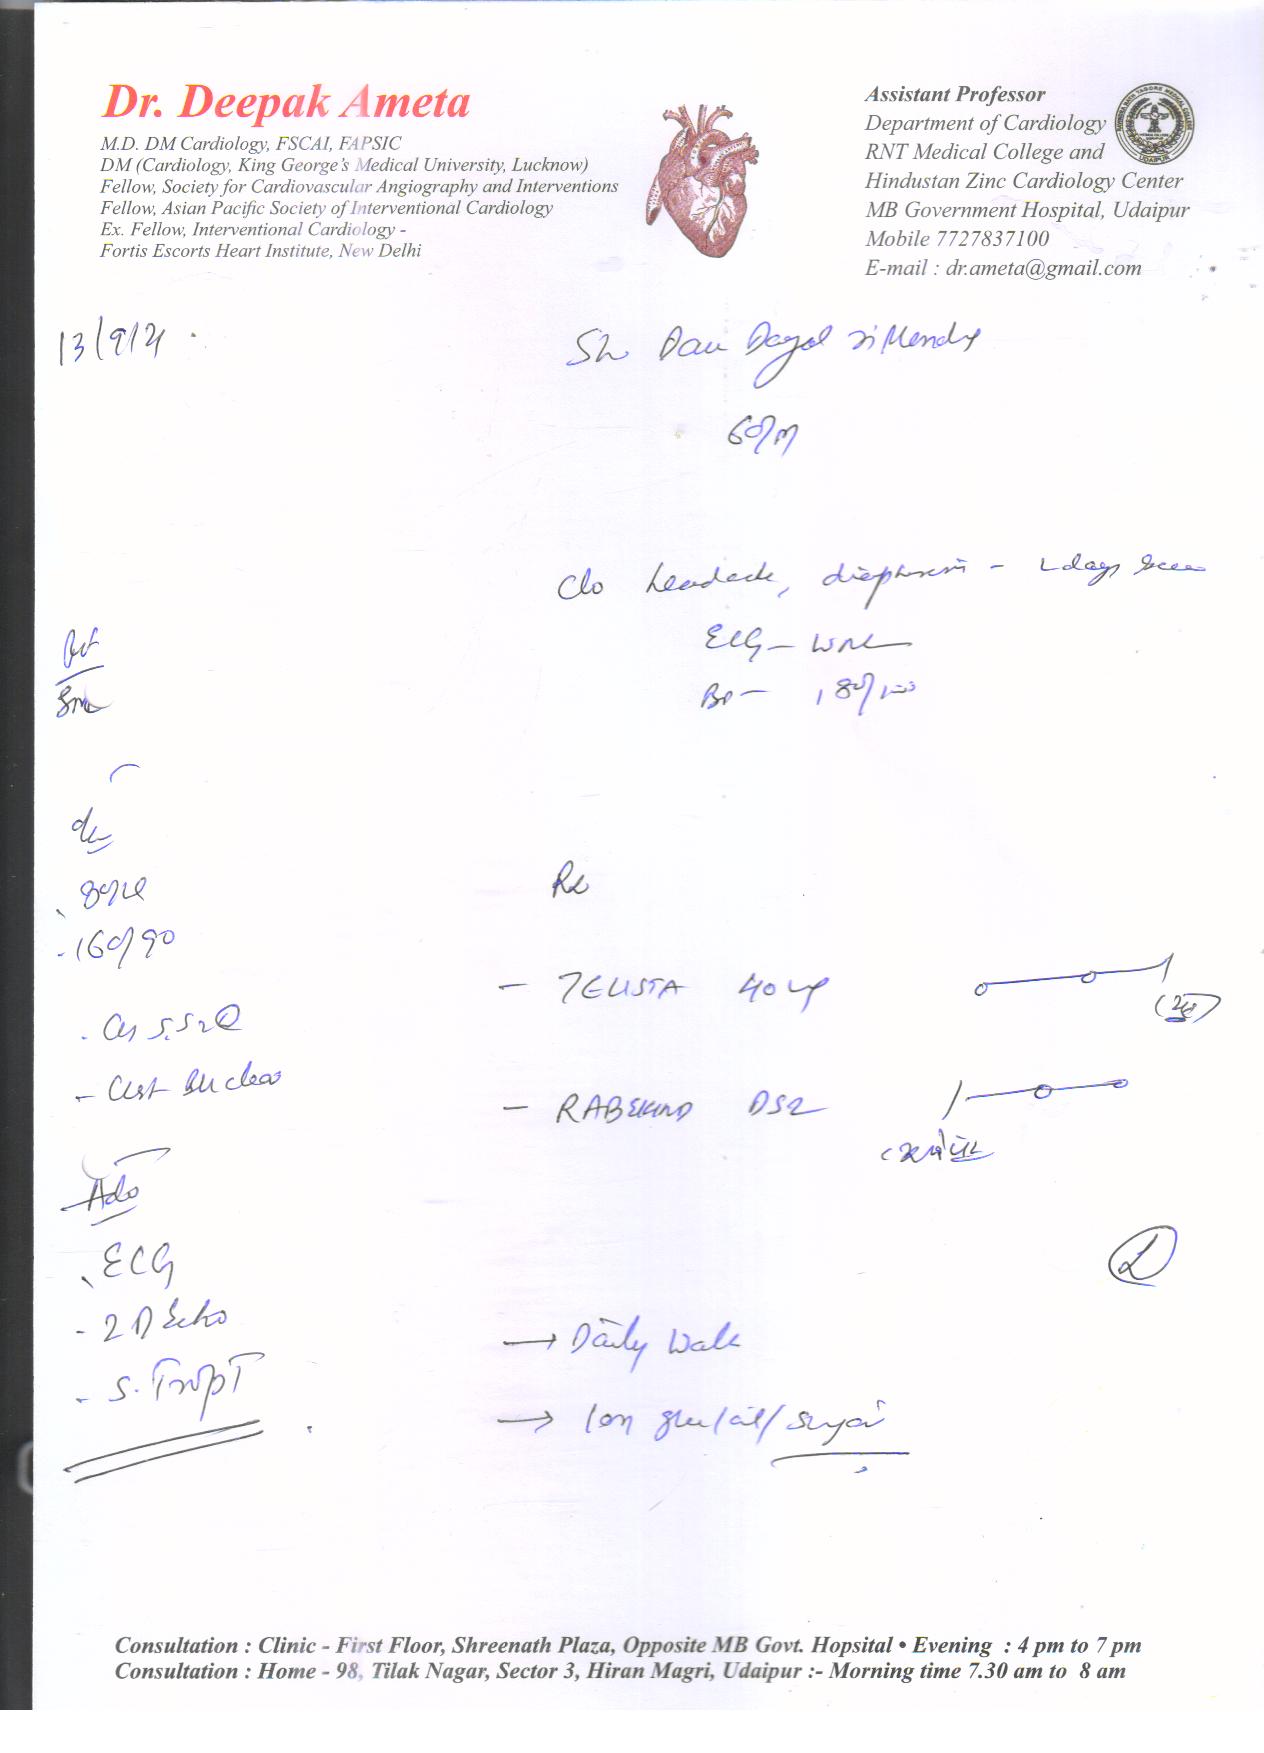 Dr. Deepak Ameta
M.D. DM Cardiology, FSCAI, FAPSIC
DM (Cardiology, King George's Medical University, Lucknow)
Fellow, Society for Cardiovascular Angiography and Interventions
Fellow, Asian Pacific Society of Interventional Cardiology
Ex. Fellow, Interventional Cardiology -
Fortis Escorts Heart Institute, New Delhi
Assistant Professor
Department of Cardiology
RNT Medical College and
Hindustan Zinc Cardiology Center
MB Government Hospital, Udaipur
Mobile 7727837100
E-mail : dr.ameta@gmail.com
UDAIPUR
13/9/21
Sh Dau Dayal
60/M
C/o headache, diaphoresis - days
ECG - WNL
BP - 180/100
- 160/90
- S1S2
- Chest B/L clear
Adv
- ECG
- 2D Echo
- S. TropT
Rx
- TELISTA 40
- RABEKIND DSR
→ Daily Walk
→ Low ghee/oil/
Consultation : Clinic - First Floor, Shreenath Plaza, Opposite MB Govt. Hopsital • Evening : 4 pm to 7 pm
Consultation : Home - 98, Tilak Nagar, Sector 3, Hiran Magri, Udaipur :- Morning time 7.30 am to 8 am